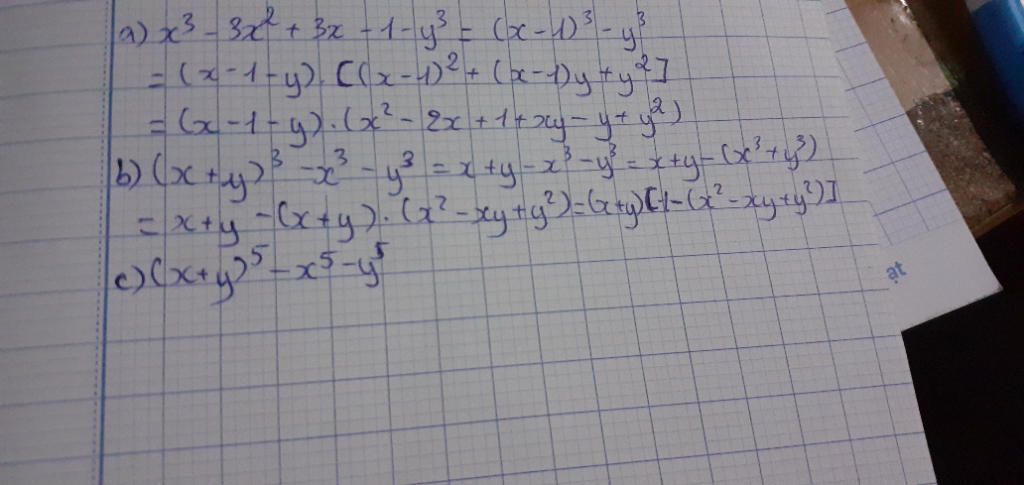 a) x³ - 3x² + 3x - 1 - y³ = (x-1)³ - y³
= (x-1-y). [(x-1)² + (x-1)y + y²]
= (x-1-y).(x² - 2x + 1 + xy - y + y²)
b) (x+y)³ - x³ - y³ = x+y - x³ - y³ = x+y - (x³+y³)
= x+y - (x+y).(x² - xy + y²) = (x+y)[1-(x² - xy + y²)]
c) (x+y)⁵ - x⁵ - y⁵
ạt